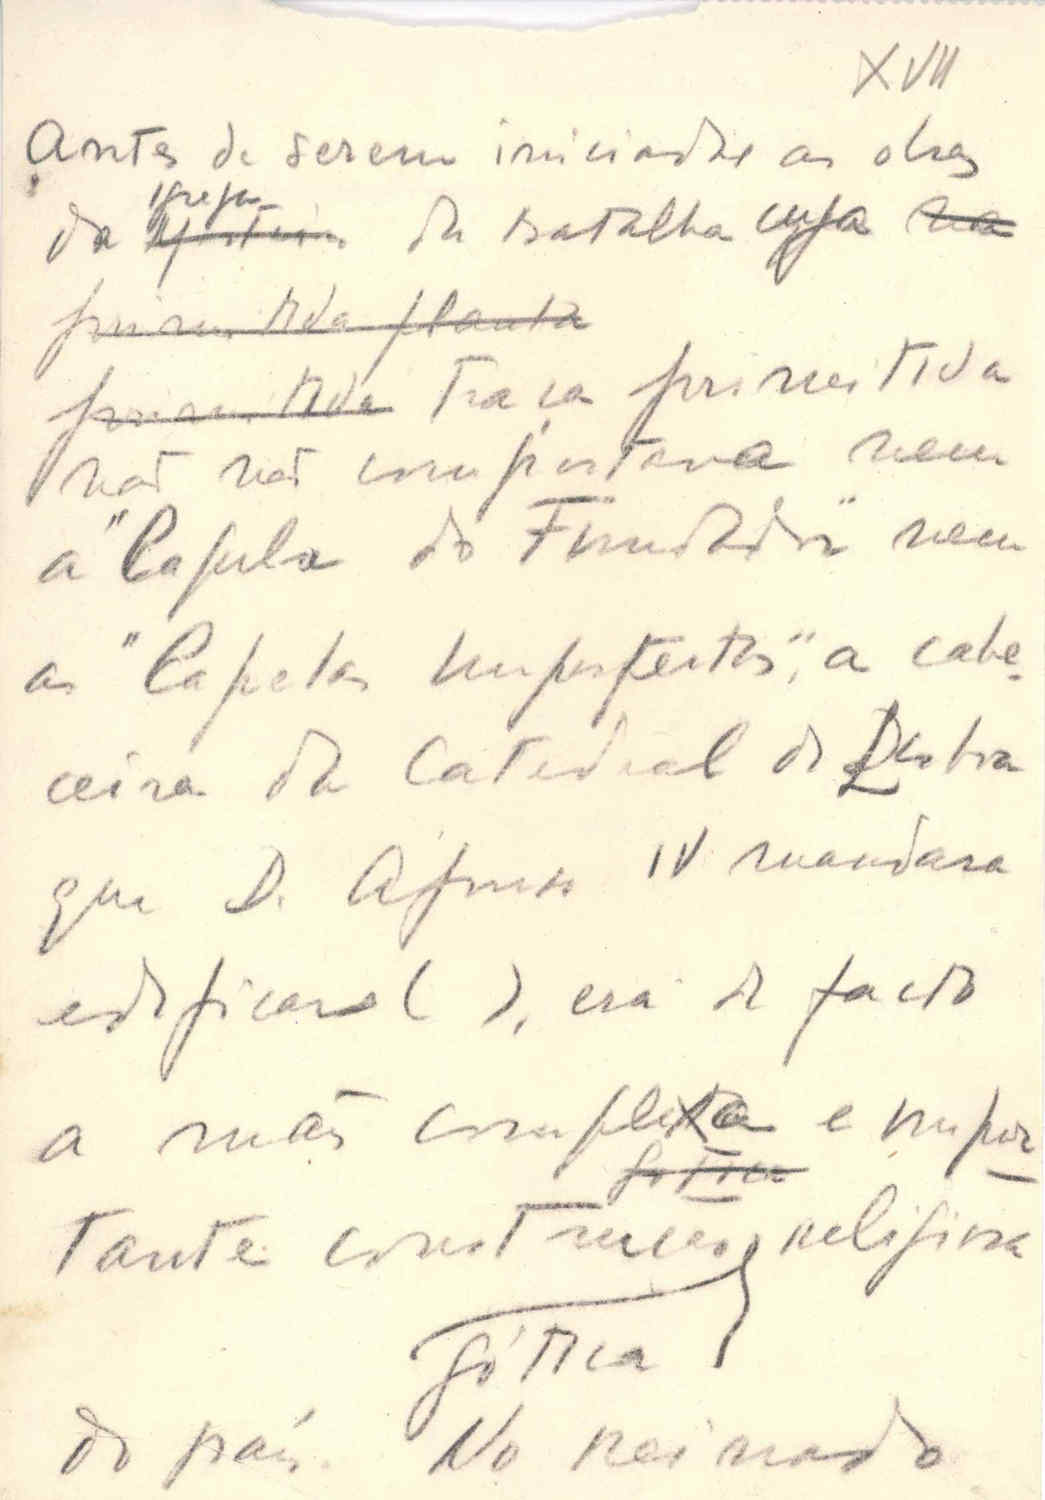 XVII
Antes de serem iniciadas as obras
igreja
da da Batalha cuja na
primitida planta
primitida traça primitida
não não comportava nem
a "Capela do Fundador" nem
as "Capelas Imperfeitas", a cabe-
ceira da Catedral de Lisboa
que D. Afonso IV mandara
edificara ( ), era de facto
a mais completa e impor
gótica
tante construção religiosa
gótica
do país. No reinado